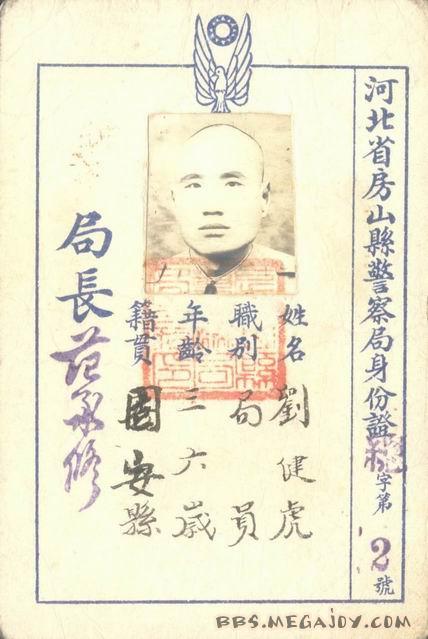 河北省房山縣警察局身份證 總字第2號
姓名 劉健虎
職別 局員
年齡 三六歲
籍貫 固安縣
局長 范承修
BBS.MEGAJOY.COM